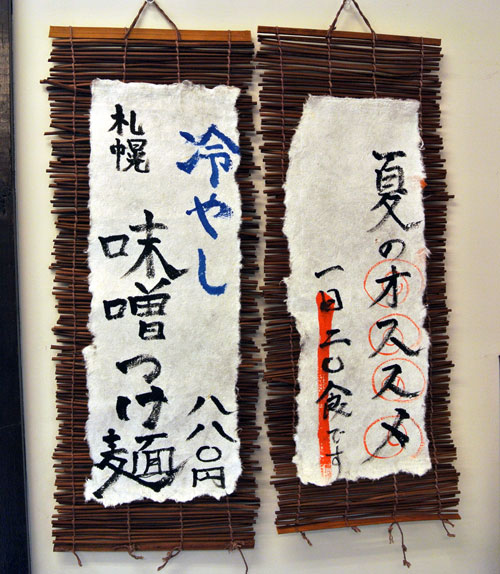 夏のオススメ
一日二〇食です
冷やし
札幌
味噌つけ麺
八八〇円